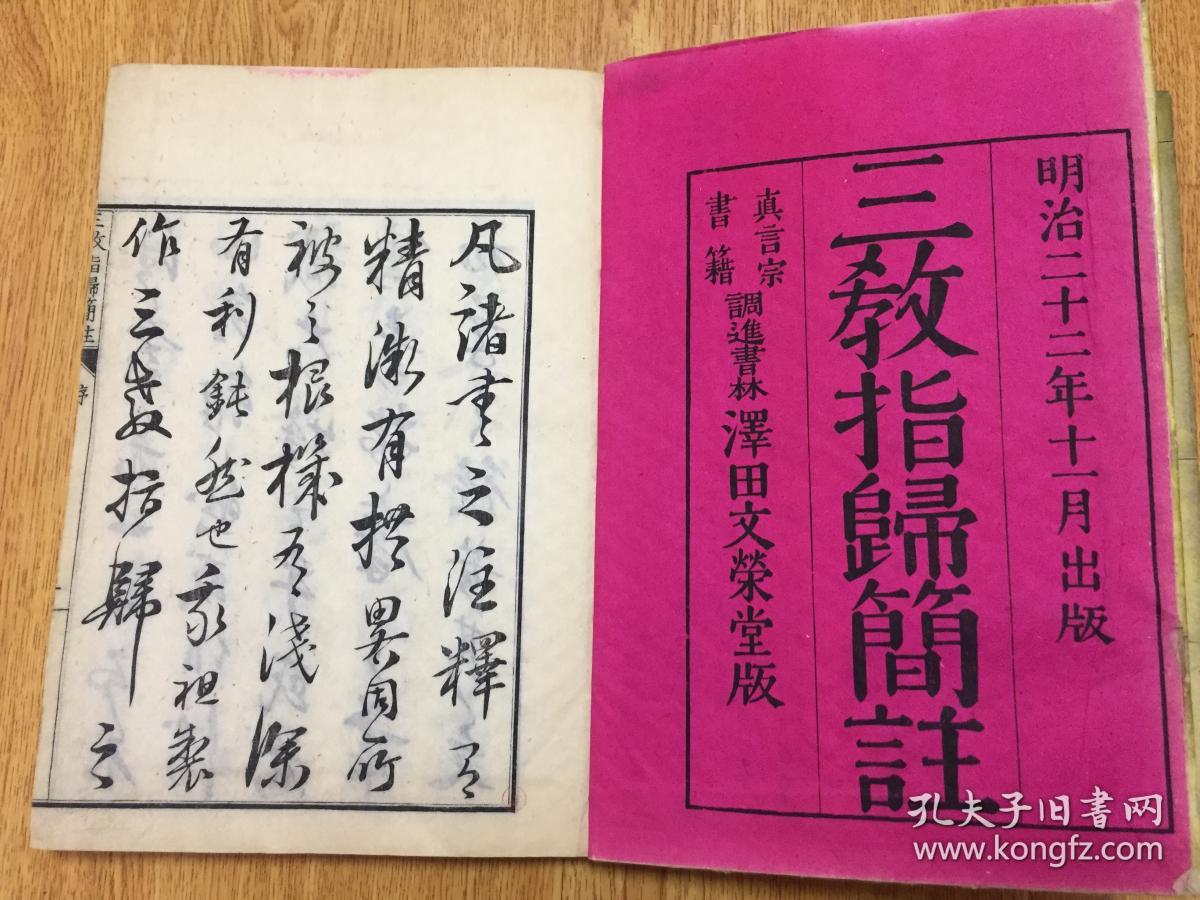 明治二十二年十一月出版
三教指歸簡註
真言宗
書籍
調進書林
澤田文榮堂版
凡諸書之注釋有
精微有推異因所
被之根機有淺深
有利鈍然也我祖製
作三教指歸之
三教指歸簡註
序
孔夫子旧书网
www.kongfz.com